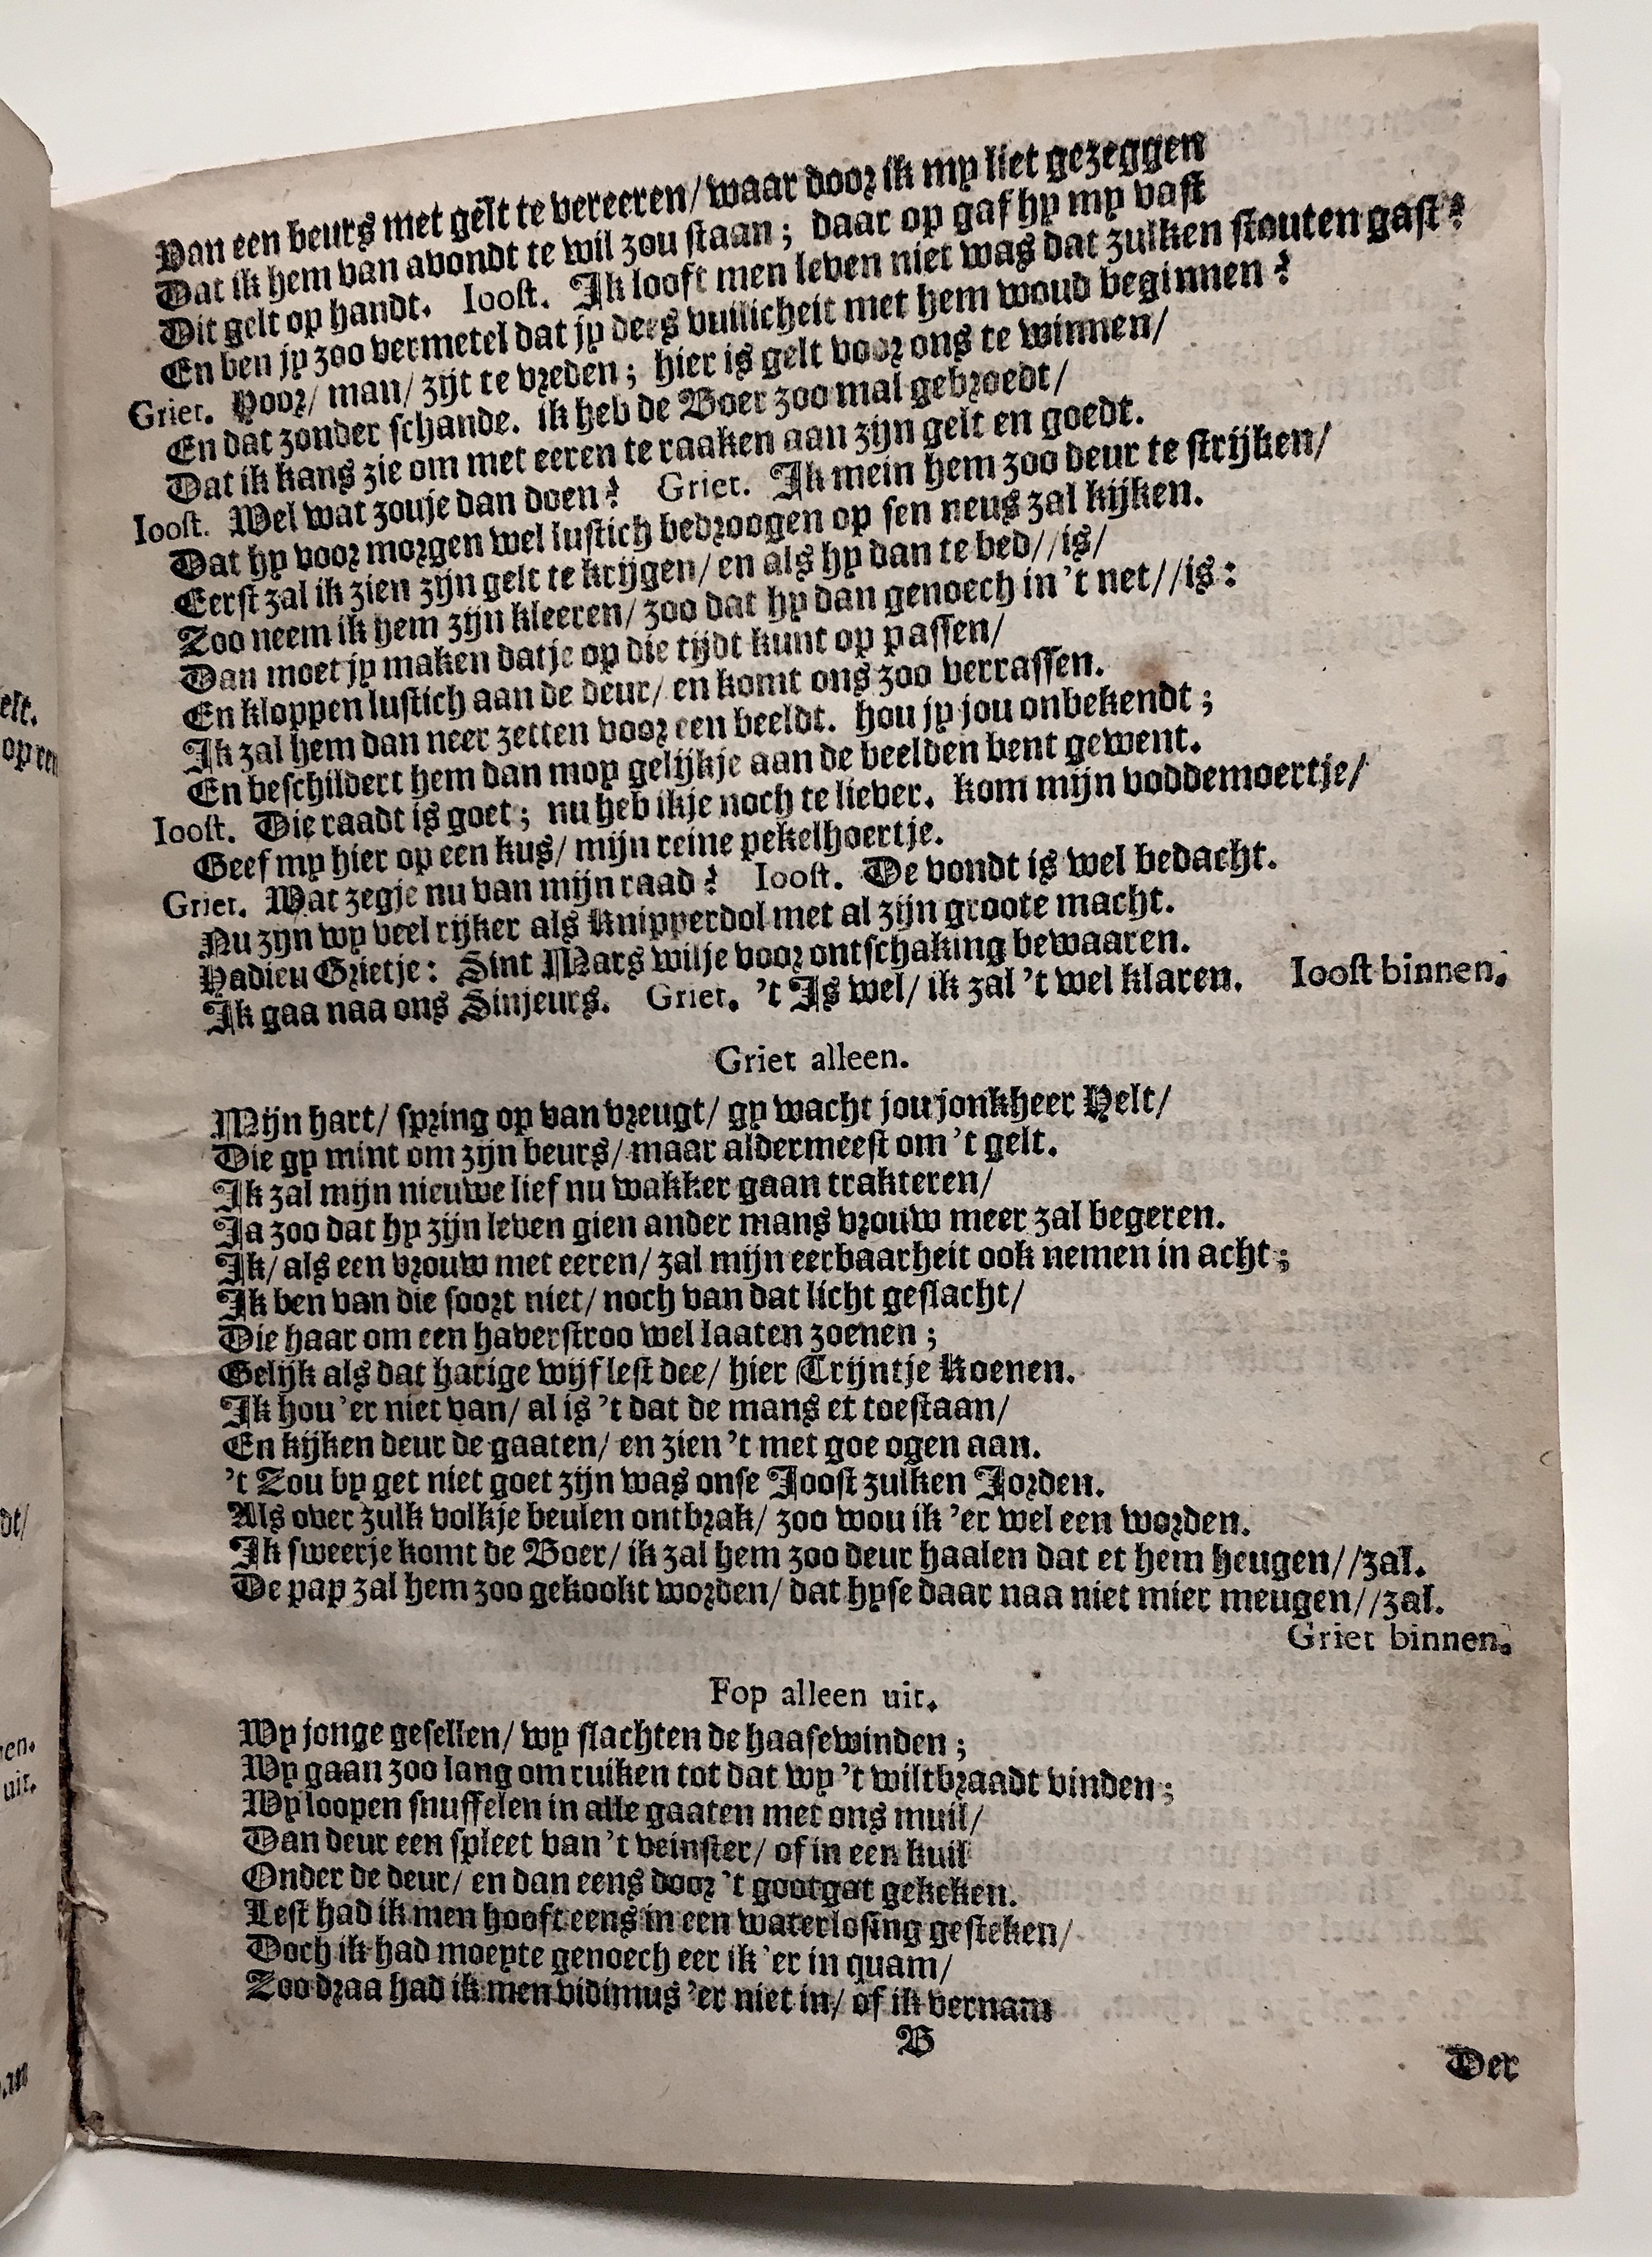 elt.
op ren
dt/
en.
uit.
Van een beurs met gelt te vereeren/ waar door ik my liet gezeggen
Dat ik hem van avondt te wil zou staan; daar op gaf hy my vast
Dit gelt op handt. Ioost. Ik looft men leven niet was dat zulken stouten gast?
En ben jy zoo vermetel dat jy dees vuilicheit met hem woud beginnen?
Griet. Hoor/ man/ zijt te vreden; hier is gelt voor ons te winnen/
En dat zonder schande. ik heb de Boer zoo mal gebroedt/
Dat ik kans zie om met eeren te raaken aan zijn gelt en goedt.
Ioost. Wel wat zouje dan doen? Griet. Ik mein hem zoo deur te strijken/
Dat hy voor morgen wel lustich bedroogen op sen neus zal kijken.
Eerst zal ik zien zijn gelt te krijgen/ en als hy dan te bed//is/
Zoo neem ik hem zijn kleeren/ zoo dat hy dan genoech in 't net//is:
Dan moet jy maken datje op die tijdt kunt op passen/
En kloppen lustich aan de deur/ en komt ons zoo verrassen.
Ik zal hem dan neer zetten voor een beeldt. hou jy jou onbekendt;
En beschildert hem dan moy gelijkje aan de beelden bent gewent.
Ioost. Die raadt is goet; nu heb ikje noch te liever. kom mijn voddemoertje/
Geef my hier op een kus/ mijn reine pekelhoertje.
Griet. Wat zegje nu van mijn raad? Ioost. De vondt is wel bedacht.
Nu zyn wy veel rijker als Knipperdol met al zijn groote macht.
Hadieu Grietje: Sint Mars wilje voor ontschaking bewaaren.
Ik gaa naa ons Sinjeurs. Griet. 't Is wel/ ik zal 't wel klaren. Ioost binnen.
Griet alleen.
Mijn hart/ spring op van vreugt/ gy wacht jou jonkheer Helt/
Die gy mint om zijn beurs/ maar aldermeest om 't gelt.
Ik zal mijn nieuwe lief nu wakker gaan trakteren/
Ja zoo dat hy zijn leven gien ander mans vrouw meer zal begeren.
Ik/ als een vrouw met eeren/ zal mijn eerbaarheit ook nemen in acht;
Ik ben van die soort niet/ noch van dat licht geslacht/
Die haar om een haverstroo wel laaten zoenen;
Gelijk als dat harige wijf lest dee/ hier Trijntje Koenen.
Ik hou 'er niet van/ al is 't dat de mans et toestaan/
En kijken deur de gaaten/ en zien 't met goe ogen aan.
't Zou by get niet goet zijn was onse Joost zulken Jorden.
Als over zulk volkje beulen ontbrak/ zoo wou ik 'er wel een worden.
Ik sweerje komt de Boer/ ik zal hem zoo deur haalen dat et hem heugen//zal.
De pap zal hem zoo gekookt worden/ dat hyse daar naa niet mier meugen//zal.
Griet binnen.
Fop alleen uit.
Wy jonge gesellen/ wy slachten de haasewinden;
Wy gaan zoo lang om ruiken tot dat wy 't wiltbraadt vinden;
Wy loopen snuffelen in alle gaaten met ons muil/
Dan deur een spleet van 't veinster/ of in een kuil
Onder de deur/ en dan eens door 't gootgat gekeken.
Lest had ik men hooft eens in een waterlosing gesteken/
Doch ik had moeyte genoech eer ik 'er in quam/
Zoo draa had ik men vidimus 'er niet in/ of ik vernam
B
Der